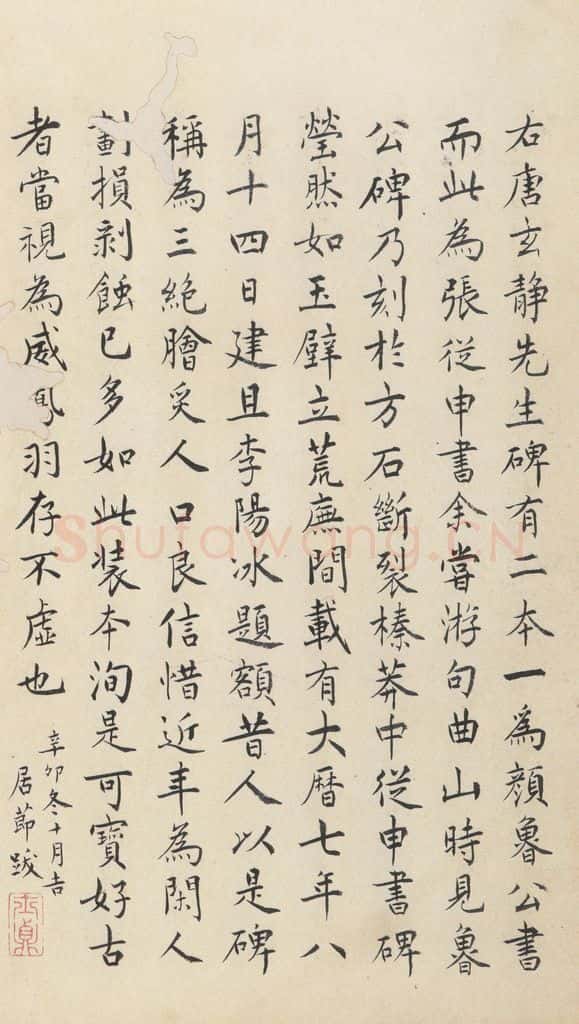 右唐玄靜先生碑有二本一爲顔魯公書
而此為張從申書余嘗游句曲山時見魯
公碑乃刻於方石斷裂榛莽中從申書碑
瑩然如玉壁立荒蕪間載有大曆七年八
月十四日建且李陽冰題額昔人以是碑
稱為三絶膾炙人口良信惜近年為閑人
劃損剥蝕已多如此装本洵是可寶好古
者當視為威鳳羽存不虛也
辛卯冬十月吉
居節跋
Shufawang.CN